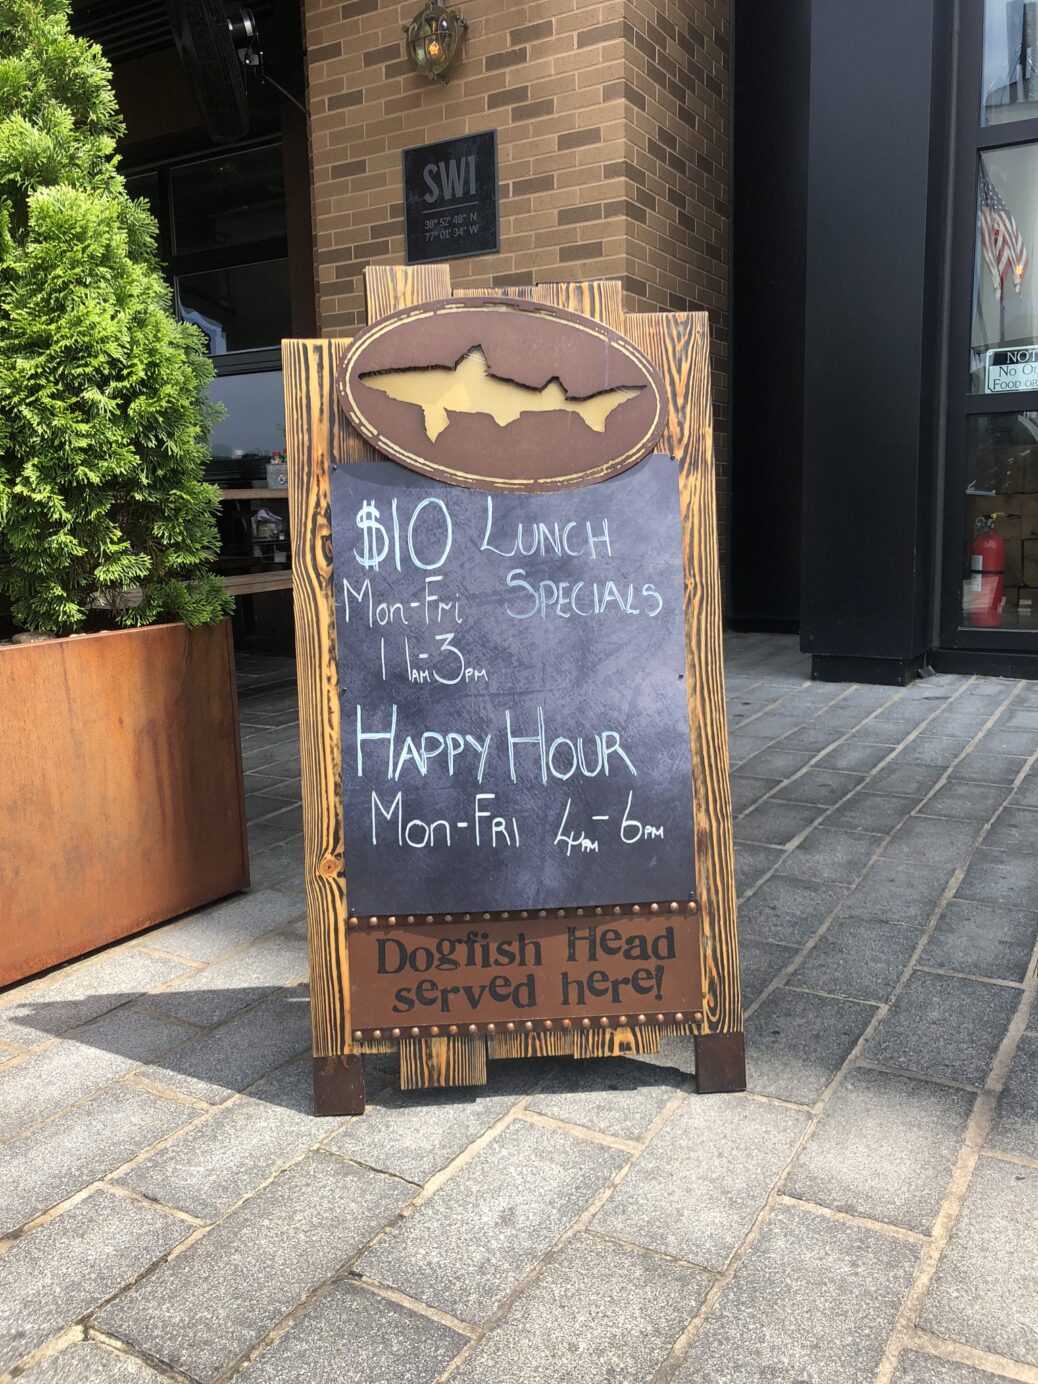 SW1
38° 52' 48" N
77° 01' 34" W
NOT
No O
FOOD OR
$10 LUNCH
Mon-Fri SPECIALS
11AM-3PM
HAPPY HOUR
MON-FRI 4PM-6PM
Dogfish Head
served here!